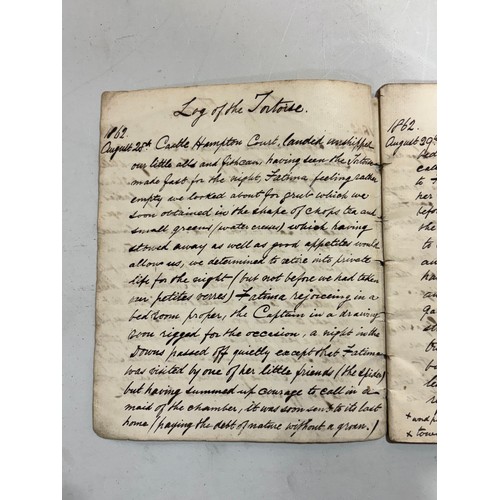 Log of the Tortoise.
1862.
August 28th Castle Hampton Court, landed, unshipped
our little alls and having seen the
made fast for the night, Fatima feeling rather
empty we looked about for grub which we
soon obtained in the shape of chops tea and
small greens (water cresses) which having
stowed away as well as good appetites would
allow us, we determined to retire into private
life for the night (but not before we had taken
our petites verres) Fatima rejoicing in a
bed room proper, the Captain in a drawing
room rigged for the occasion, a night in the
Downs passed off quietly except that Fatima
was visited by one of her little friends (the spider)
but having summed up courage to call in a
maid of the chamber, it was soon sent to its last
home (paying the debt of nature without a groan.)
1862.
August 29th